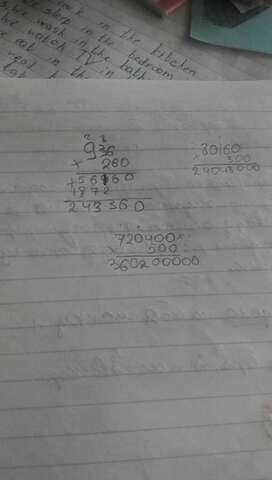 in the kitchen
sleep in the bedroom
wash in the
watch TV in the bath
eat in the
2 1
936
× 260
+56160
1872
243360
80160
×300
24048000
720400
× 500
360200000